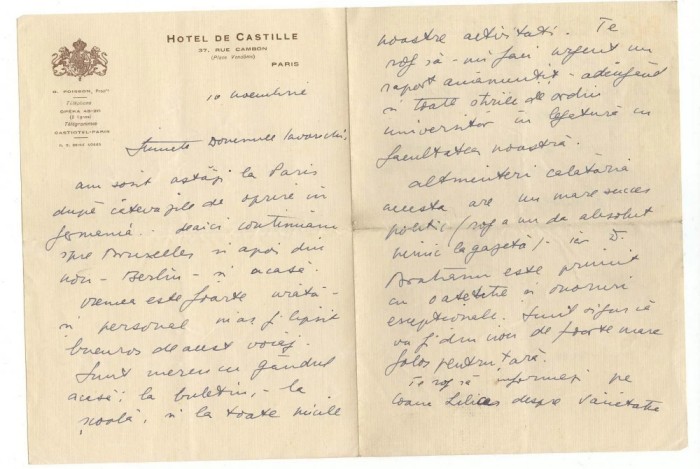 HOTEL DE CASTILLE
37, RUE CAMBON
(Place Vendôme)
PARIS
H. POIRRON, Propre
Téléphone
OPÉRA
(3 lignes)
Télégrammes
CASTIOTEL-PARIS
10 noembrie
Domnule Iavorschi,
am sosit astăzi la Paris
după câteva zile de oprire în
Germania. deaici continuăm
spre Bruxelles si apoi din
nou - Berlin - si acasă.
vremea este foarte urâtă -
si personal m'as fi lipsit
bucuros de acest voiaj.
Sunt mereu cu gândul
acasă, la buletin, - la
școală, si la toate micile
noastre activitati. Te
rog să-mi faci urgent un
raport amănunțit - adăugând
si toate stirile de ordin
universitar in legătură cu
facultatea noastră.
altminteri călătoria
aceasta are un mare succes
politic (rog a nu da absolut
nimic la gazetă). iar D.
Bratianu este primit
cu o atentie si onoruri
exceptionale. Sunt sigur că
va fi din nou de foarte mare
folos pentru tară.
Te rog să informezi pe
despre